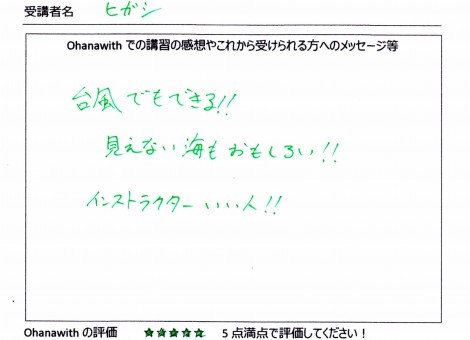 受講者名 ヒガシ
Ohanawith での講習の感想やこれから受けられる方へのメッセージ等
台風でもできる!!
見えない海もおもしろい!!
インストラクターいい人!!
Ohanawith の評価 ★★★★★ 5点満点で評価してください！